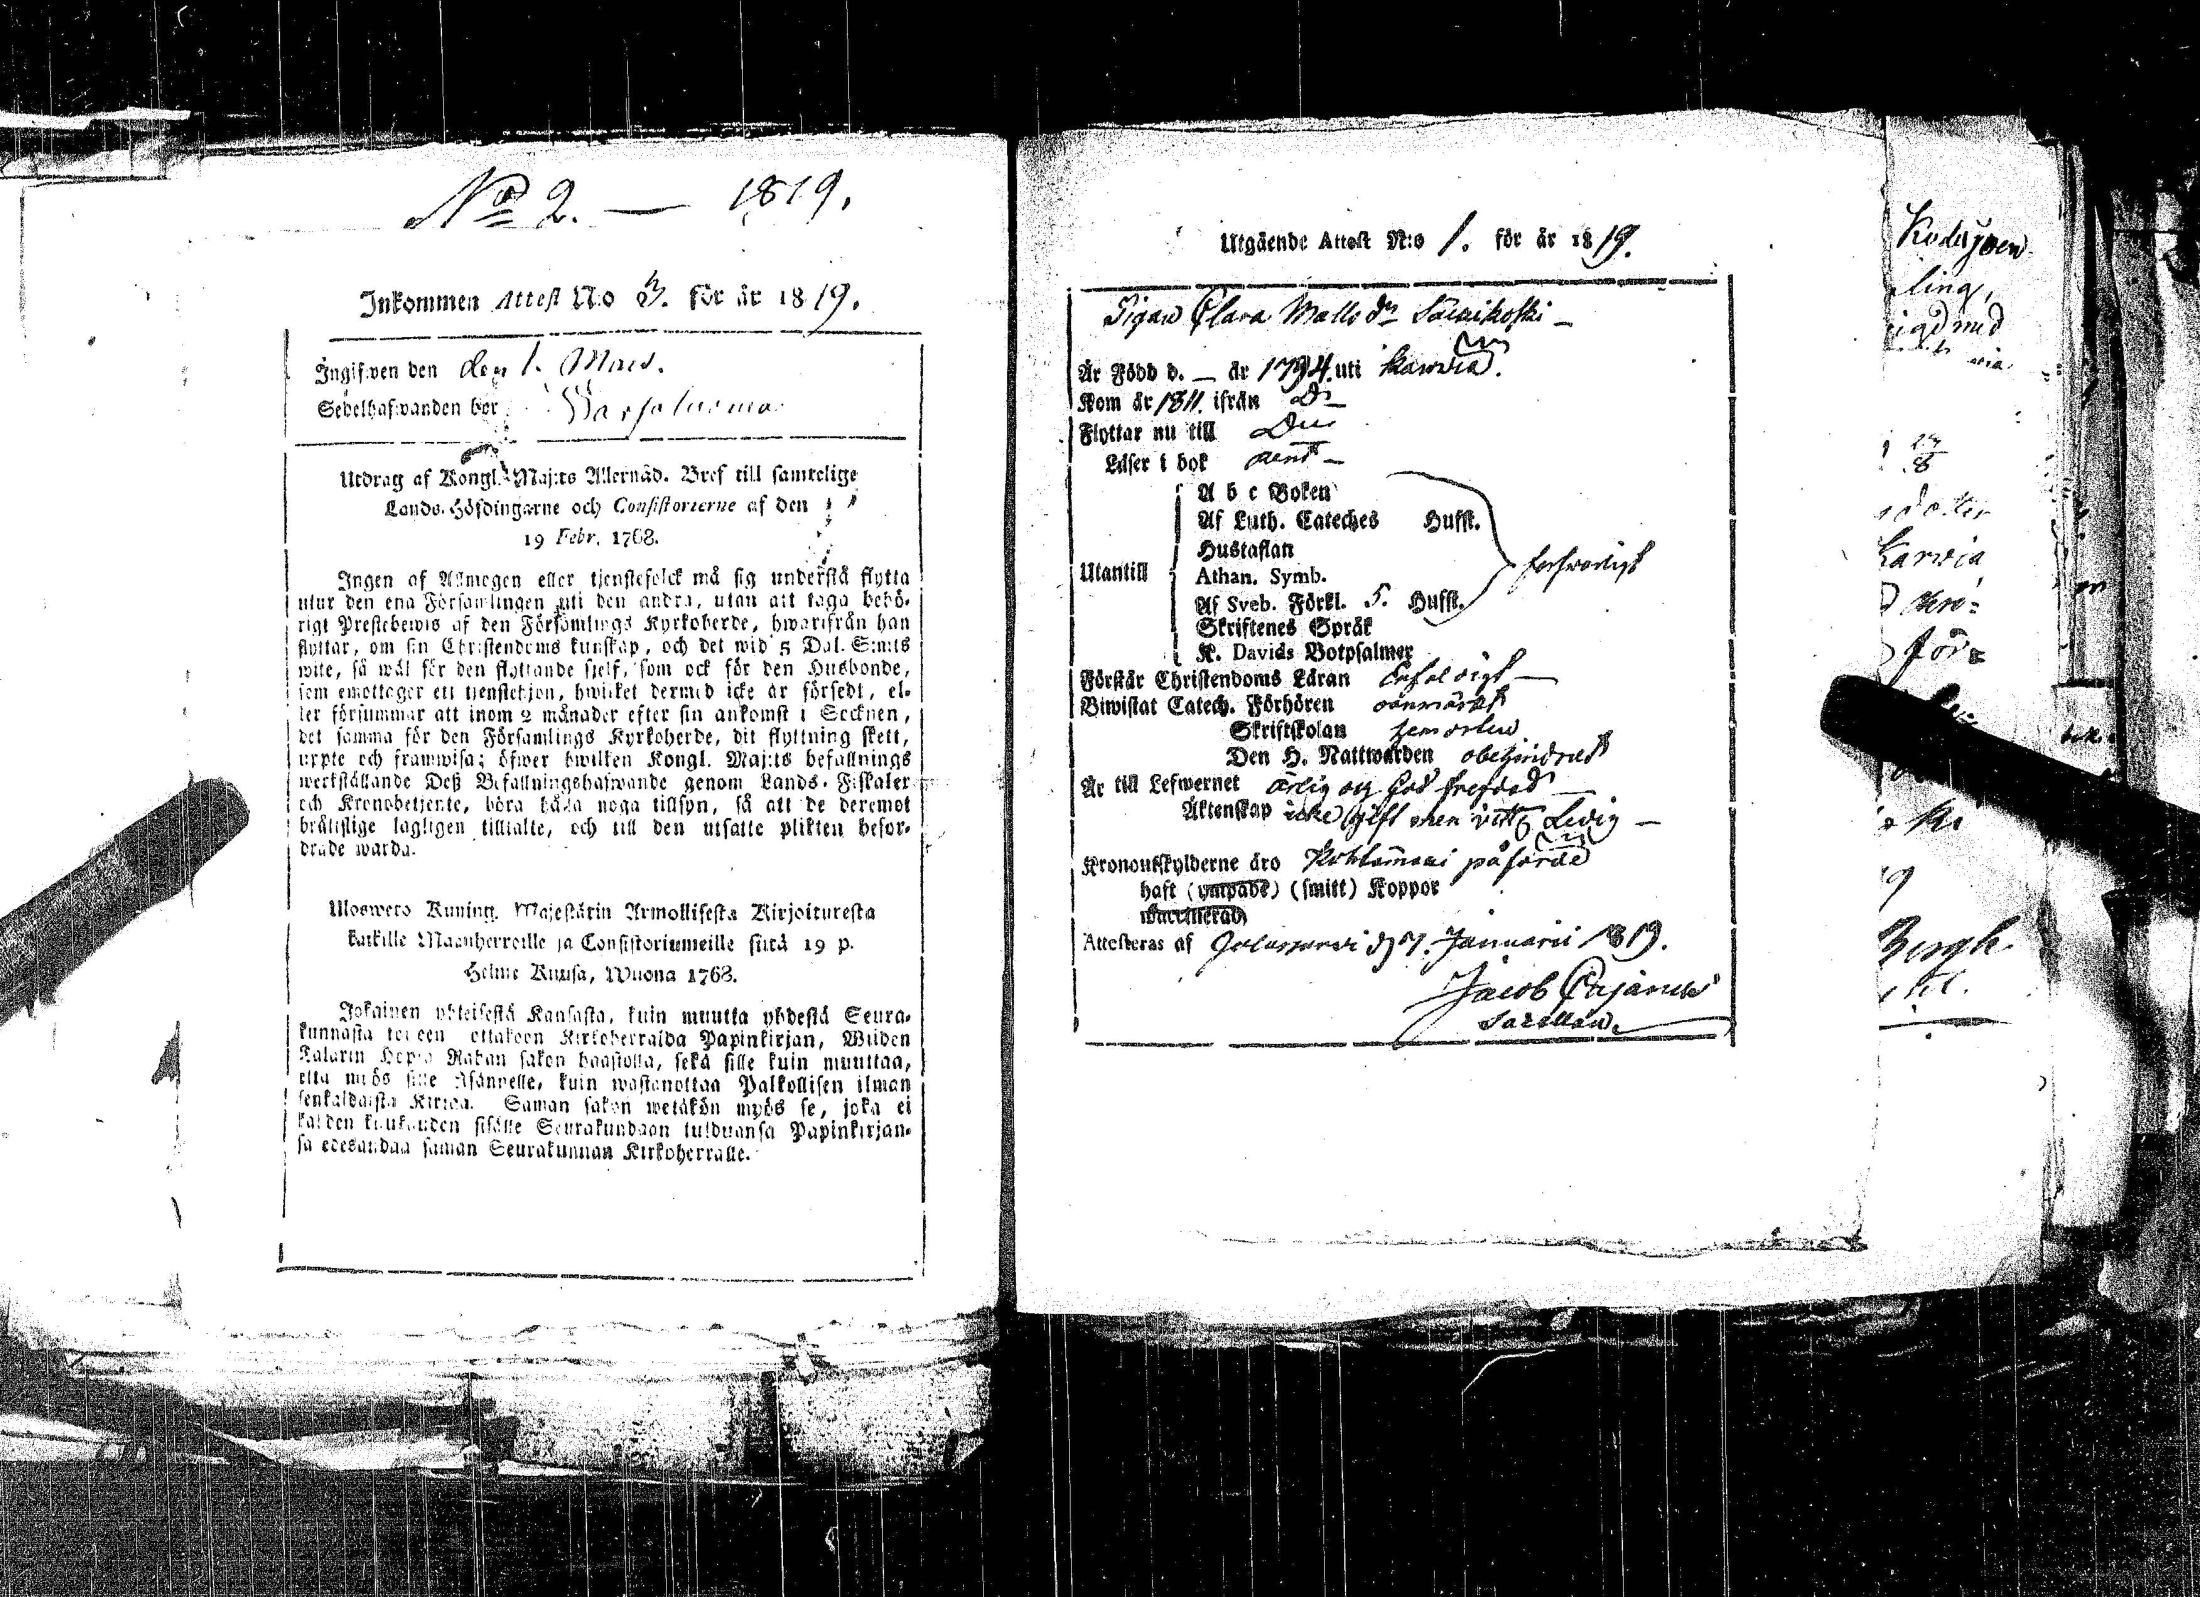 No 2. — 1819.
Inkommen Attest N:o 3. för år 1819.
Ingifwen den den 1. Mars.
Sedelhafwanden bor
Utdrag af Kongl. Maj:ts Allernåd. Bref till samtelige
Lands-Höfdingarne och Consistorierne af den
19 Febr. 1768.
Ingen af Allmogen eller tjenstefolck må sig understå flytta
utur den ena Församlingen uti den andra, utan att taga behö-
rigt Prestebewis af den Församlings Kyrkoherde, hwarifrån han
flyttar, om sin Christendoms kunskap, och det wid 5 Dal. S:mts
wite, så wäl för den flyttande sjelf, som ock för den Husbonde,
som emottager ett tienstehjon, hwilket dermed icke är försedt, el-
ler försummar att inom 2 månader efter sin ankomst i Socknen,
det samma för den Församlings Kyrkoherde, dit flyttning skett,
uppte och framwisa; öfwer hwilken Kongl. Maj:ts befallnings
werkställande Deß Befallningshafwande genom Lands-Fiskaler
och Kronobetjente, böra hålla noga tillsyn, så att de deremot
bråttslige lagligen tilltalte, och till den utsatte plikten befor-
drade warda.
Uloswero Kuning. Majestätin Armollisesta Kirjoituresta
kaikille Maanherroille ja Consistoriumeille siitä 19 p.
Helme Kuusa, Wuona 1768.
Jokainen yhteisestä Kansasta, kuin muutta yhdestä Seura-
kunnasta toiseen ottakoon Kirkoherralda Papinkirjan, Wiiden
Talarin Hopia Rahan sakon haastolla, sekä sille kuin muuttaa,
että myös sille Isännelle, kuin wastanottaa Palkollisen ilman
senkaldaista Kirjaa. Saman sakon wetäkön myös se, joka ei
kahden kuukauden sisälle Seurakundaan tulduansa Papinkirjan-
sa edesandaa saman Seurakunnan Kirkoherralle.
Utgående Attest N:o 1. för år 1819.
Pigan Clara Matts dr
Är Född d. — år 1794. uti Karvia.
Kom år 1811. ifrån Do
Flyttar nu till Dito
Läser i bok rent —
A b c Boken
Af Luth. Cateches Hufst.
Hustaflan
Utantill Athan. Symb. försvarligt
Af Sveb. Förkl. 5. Hufst.
Skriftenes Språk
K. Davids Botpsalmer
Förstår Christendoms Läran enfaldigt —
Biwistat Catech. Förhören oanmärkt
Skriftskolan
Den H. Nattwarden obehindradt
Är till Lefwernet ärlig og God frejdad —
Äktenskap icke gift men Ledig —
Kronoutskylderne äro påförde
haft (ympade) (smitt) Koppor
waccinerad
Attesteras af 7. Januarii 1819.
Jacob Cajanus
Sacellan.
Karvia
för=
Bergh